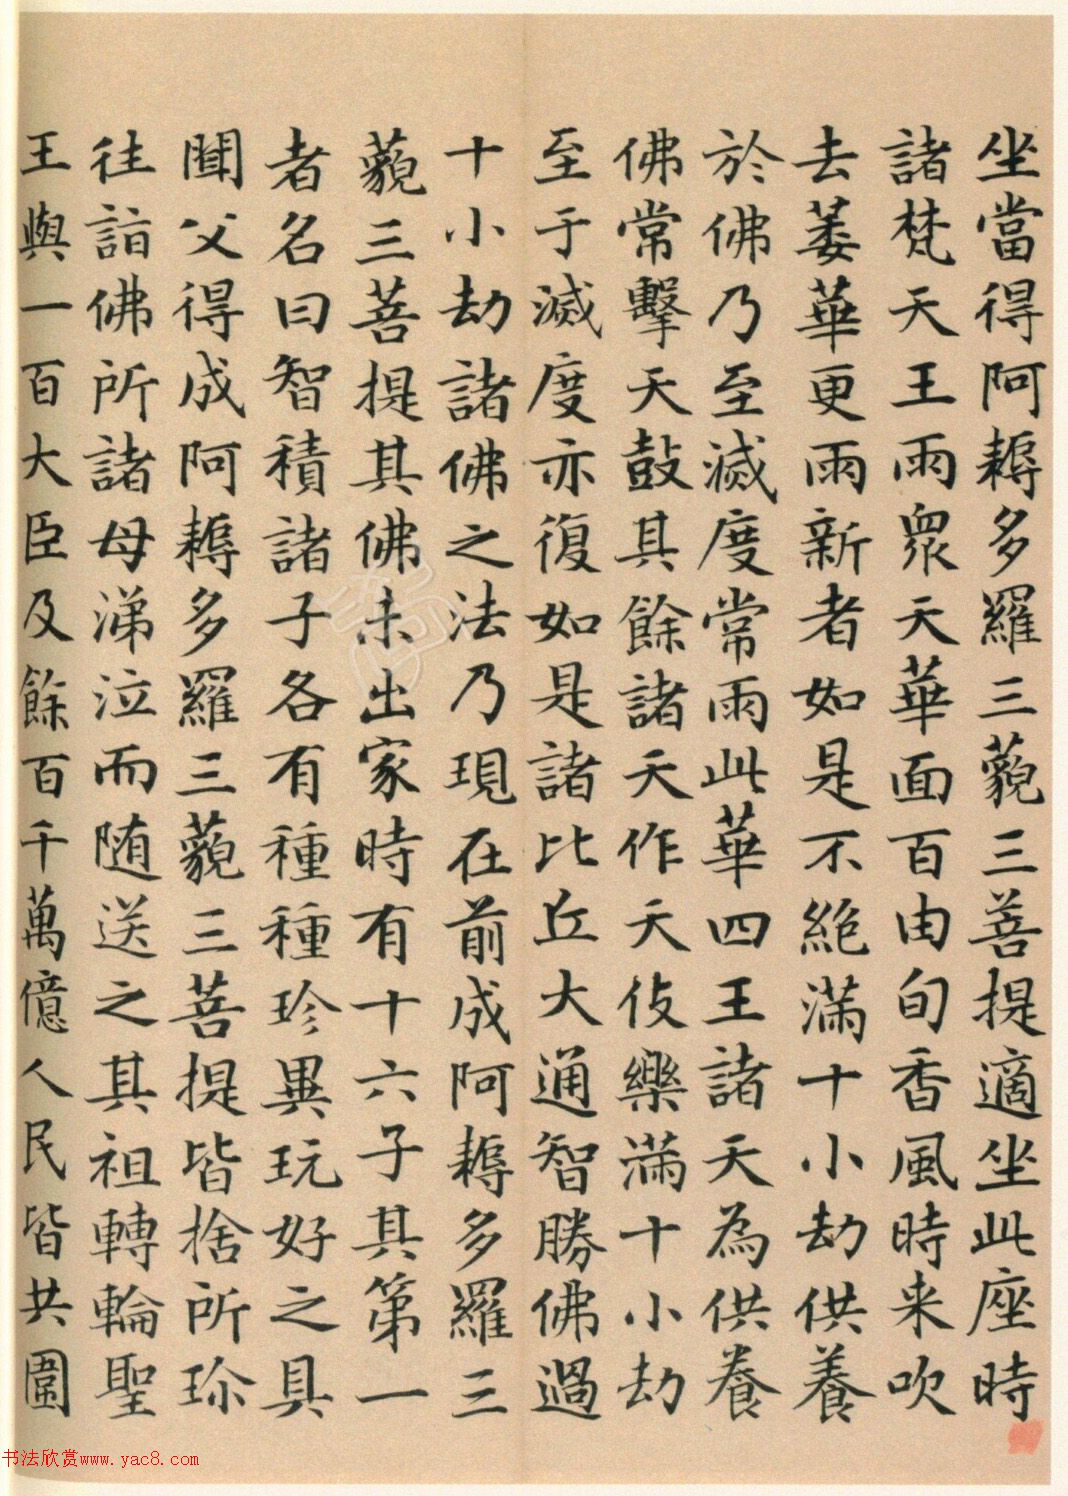 坐當得阿耨多羅三藐三菩提適坐此座時
諸梵天王雨眾天華面百由旬香風時来吹
去萎華更雨新者如是不絶滿十小劫供養
於佛乃至滅度常雨此華四王諸天為供養
佛常擊天鼓其餘諸天作天伎樂滿十小劫
至于滅度亦復如是諸比丘大通智勝佛過
十小劫諸佛之法乃現在前成阿耨多羅三
藐三菩提其佛未出家時有十六子其第一
者名曰智積諸子各有種種珍異玩好之具
聞父得成阿耨多羅三藐三菩提皆捨所珎
往詣佛所諸母涕泣而随送之其祖轉輪聖
王與一百大臣及餘百千萬億人民皆共圍
书法欣赏www.yac8.com